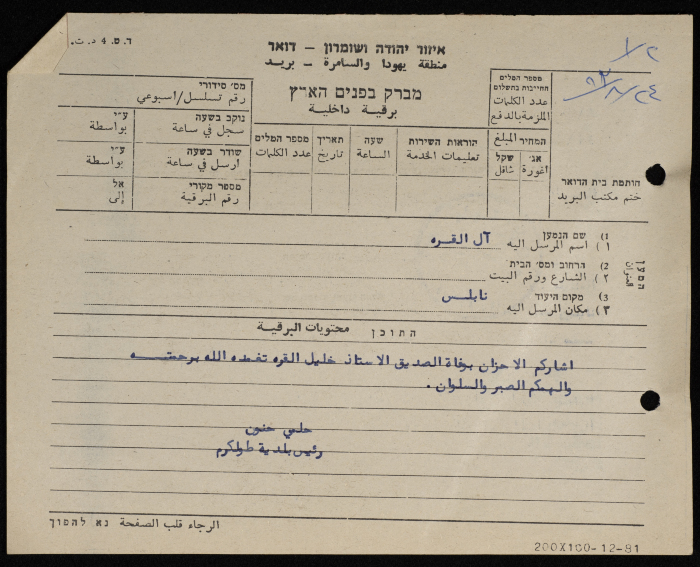 ד.ט. 4 ד.ת.
איזור יהודה ושומרון – דואר
منطقة يهودا والسامرة – بريد
מברק בפנים הארץ
برقية داخلية
מס' סידורי
رقم تسلسل/اسبوعي
נוקב בשעה ע"י
سجل في ساعة بواسطة
שודר בשעה ע"י
ارسل في ساعة بواسطة
מספר מקורי אל
رقم البرقية إلى
מספר המלים
عدد الكلمات
תאריך
تاريخ
שעה
الساعة
הוראות השירות
تعليمات الخدمة
מספר המלים
החייבות בתשלום
عدد الكلمات
الملزمة بالدفع
המחיר المبلغ
אג' שקל
اغورة شاقل
חותמת בית הדואר
ختم مكتب البريد
המען
العنوان
1) שם הנמען
١) اسم المرسل اليه آل القره
2) הרחוב ומס' הבית
٢) الشارع ورقم البيت
3) מקום היעוד
٣) مكان المرسل اليه نابلس
התוכן محتويات البرقية
اشاركم الاحزان بوفاة الصديق الاستاذ خليل القره تغمده الله برحمته
والهمكم الصبر والسلوان .
حلمي حنون
رئيس بلدية طولكرم
الرجاء قلب الصفحة נא להפוך
200X100-12-81